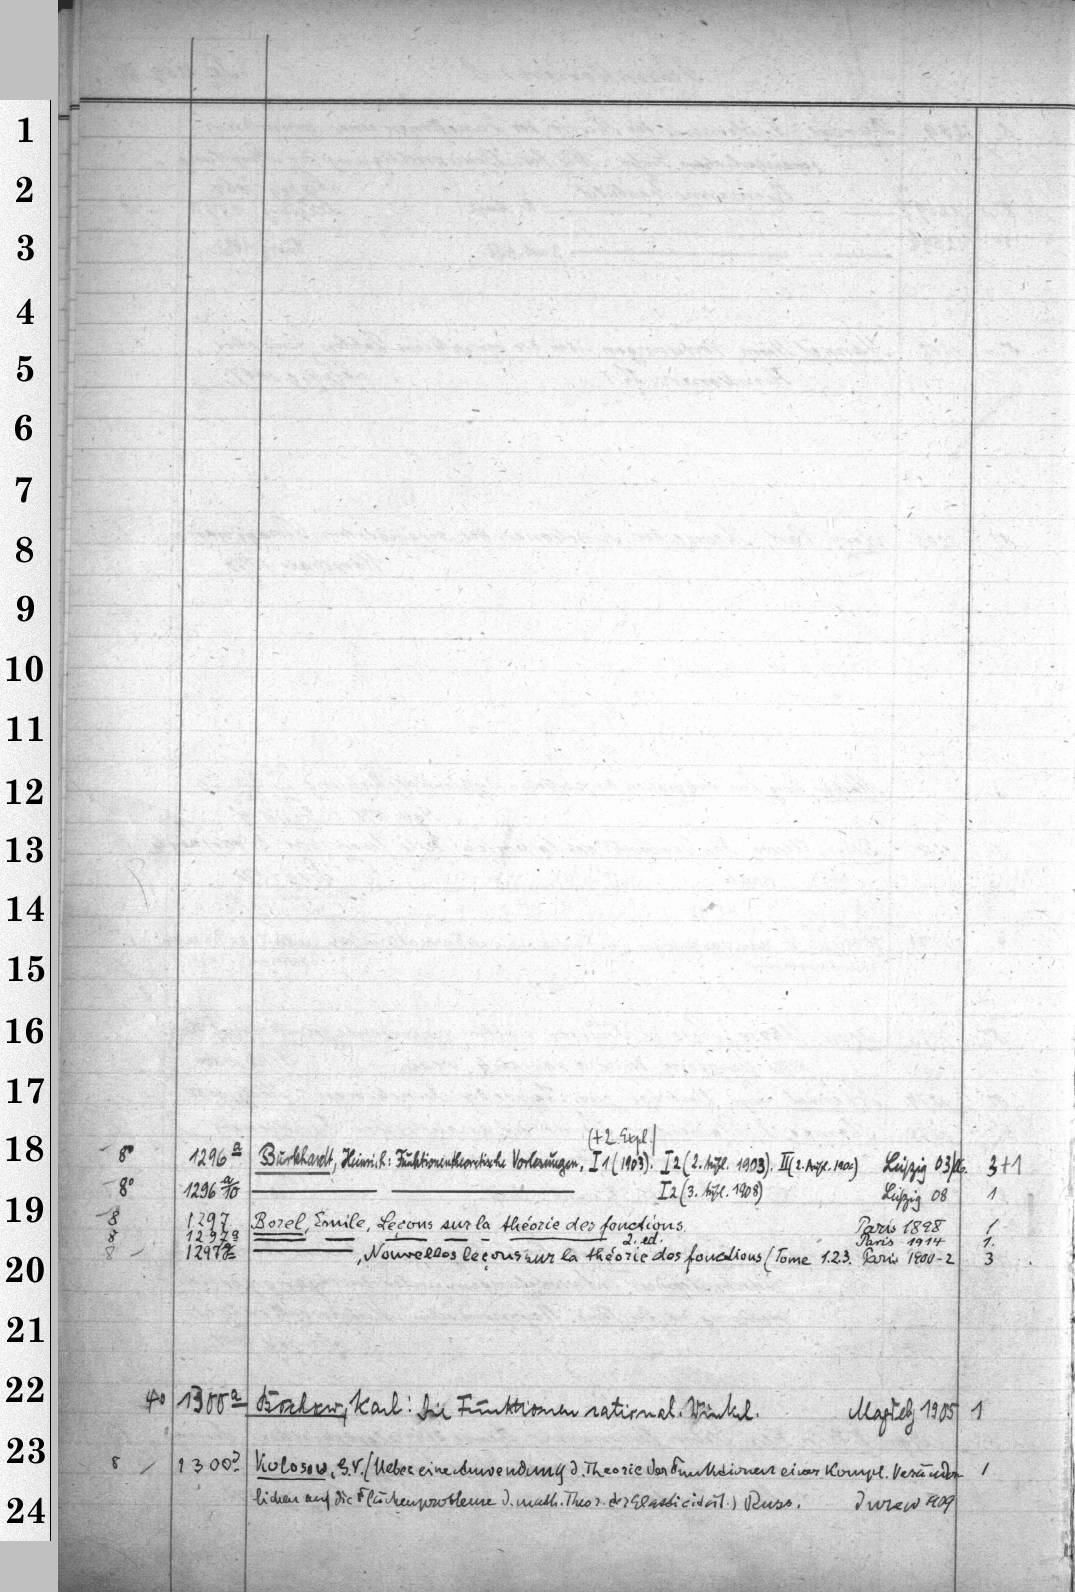 1
2
3
4
5
6
7
8
9
10
11
12
13
14
15
16
17
18
19
20
21
22
23
24
(+2. Expl.)
8° 1296a Burkhardt, Heinrich: Funktionentheoretische Vorlesungen, I1 (1903). I2 (2. Aufl. 1903). II (2. Aufl. 1906) Leipzig 03/06. 3+1
8° 1296a/10 I2 (3. Aufl. 1908) Leipzig 08 1
8 1297 Borel, Emile, Leçons sur la théorie des fonctions. Paris 1898 1
8 1297a 2. ed. Paris 1914 1.
8 1297 , Nouvelles leçons sur la théorie des fonctions (Tome 1.2.3. Paris 1900-2 3
4o 1300a Bochow, Karl: Die Funktionen rational. Winkel. Magdebg 1905 1
8 1300 Kolosow, G.V. (Ueber eine Anwendung d. Theorie der Funktionen einer Kompl. Veränder-
lichen auf die Flächenprobleme d. math. Theor. der Elasticität.) Russ. Jurew 1909 1